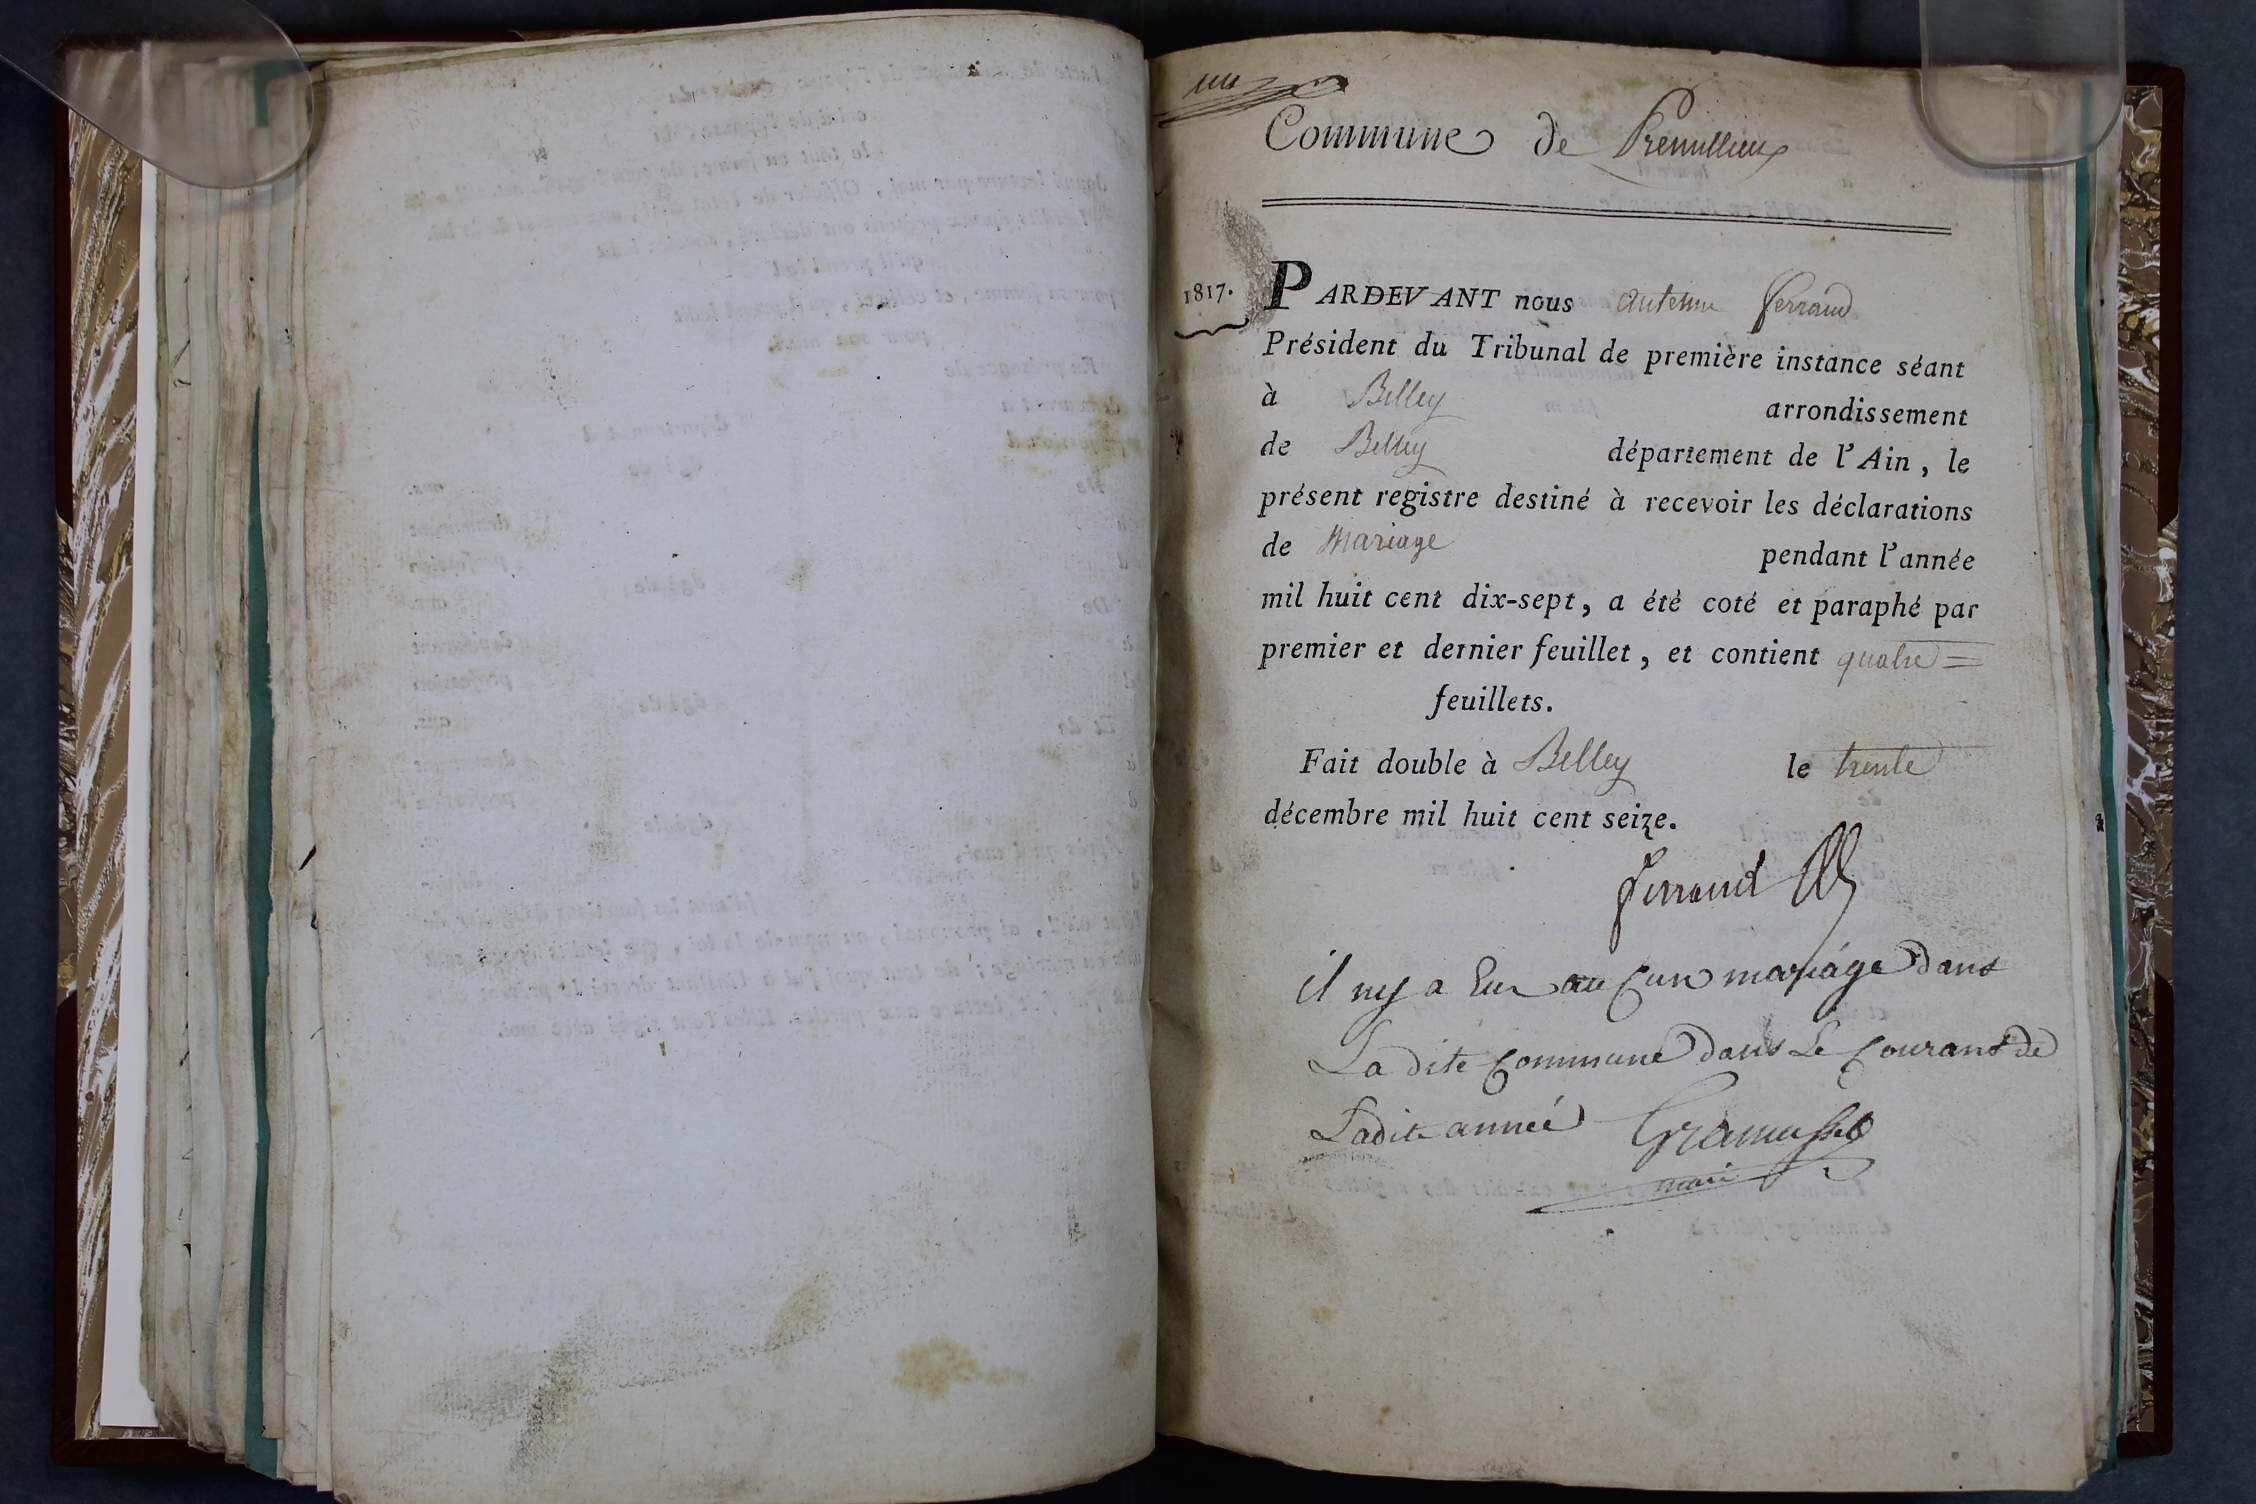 un
Commune de Premillieu
1817. PARDEVANT nous antelme ferrand
Président du Tribunal de première instance séant
à Belley arrondissement
de Belley département de l'Ain, le
présent registre destiné à recevoir les déclarations
de Mariage pendant l'année
mil huit cent dix-sept, a été coté et paraphé par
premier et dernier feuillet, et contient quatre
feuillets.
Fait double à Belley le trente
décembre mil huit cent seize.
ferrand
il ny a Eu au Cun mariage dans
La dite Commune dans Le Courant de
Ladite anneé Gramusset
mari